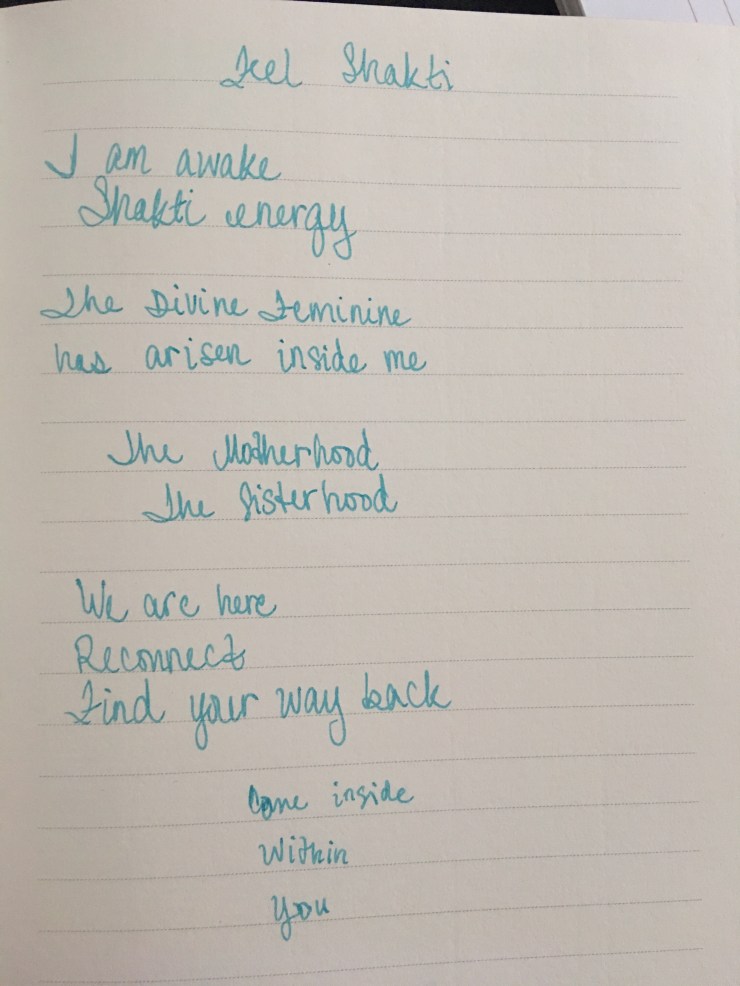 Feel Shakti
I am awake
Shakti energy
The Divine Feminine
has arisen inside me
The Motherhood
The Sisterhood
We are here
Reconnect
Find your way back
Come inside
Within
You